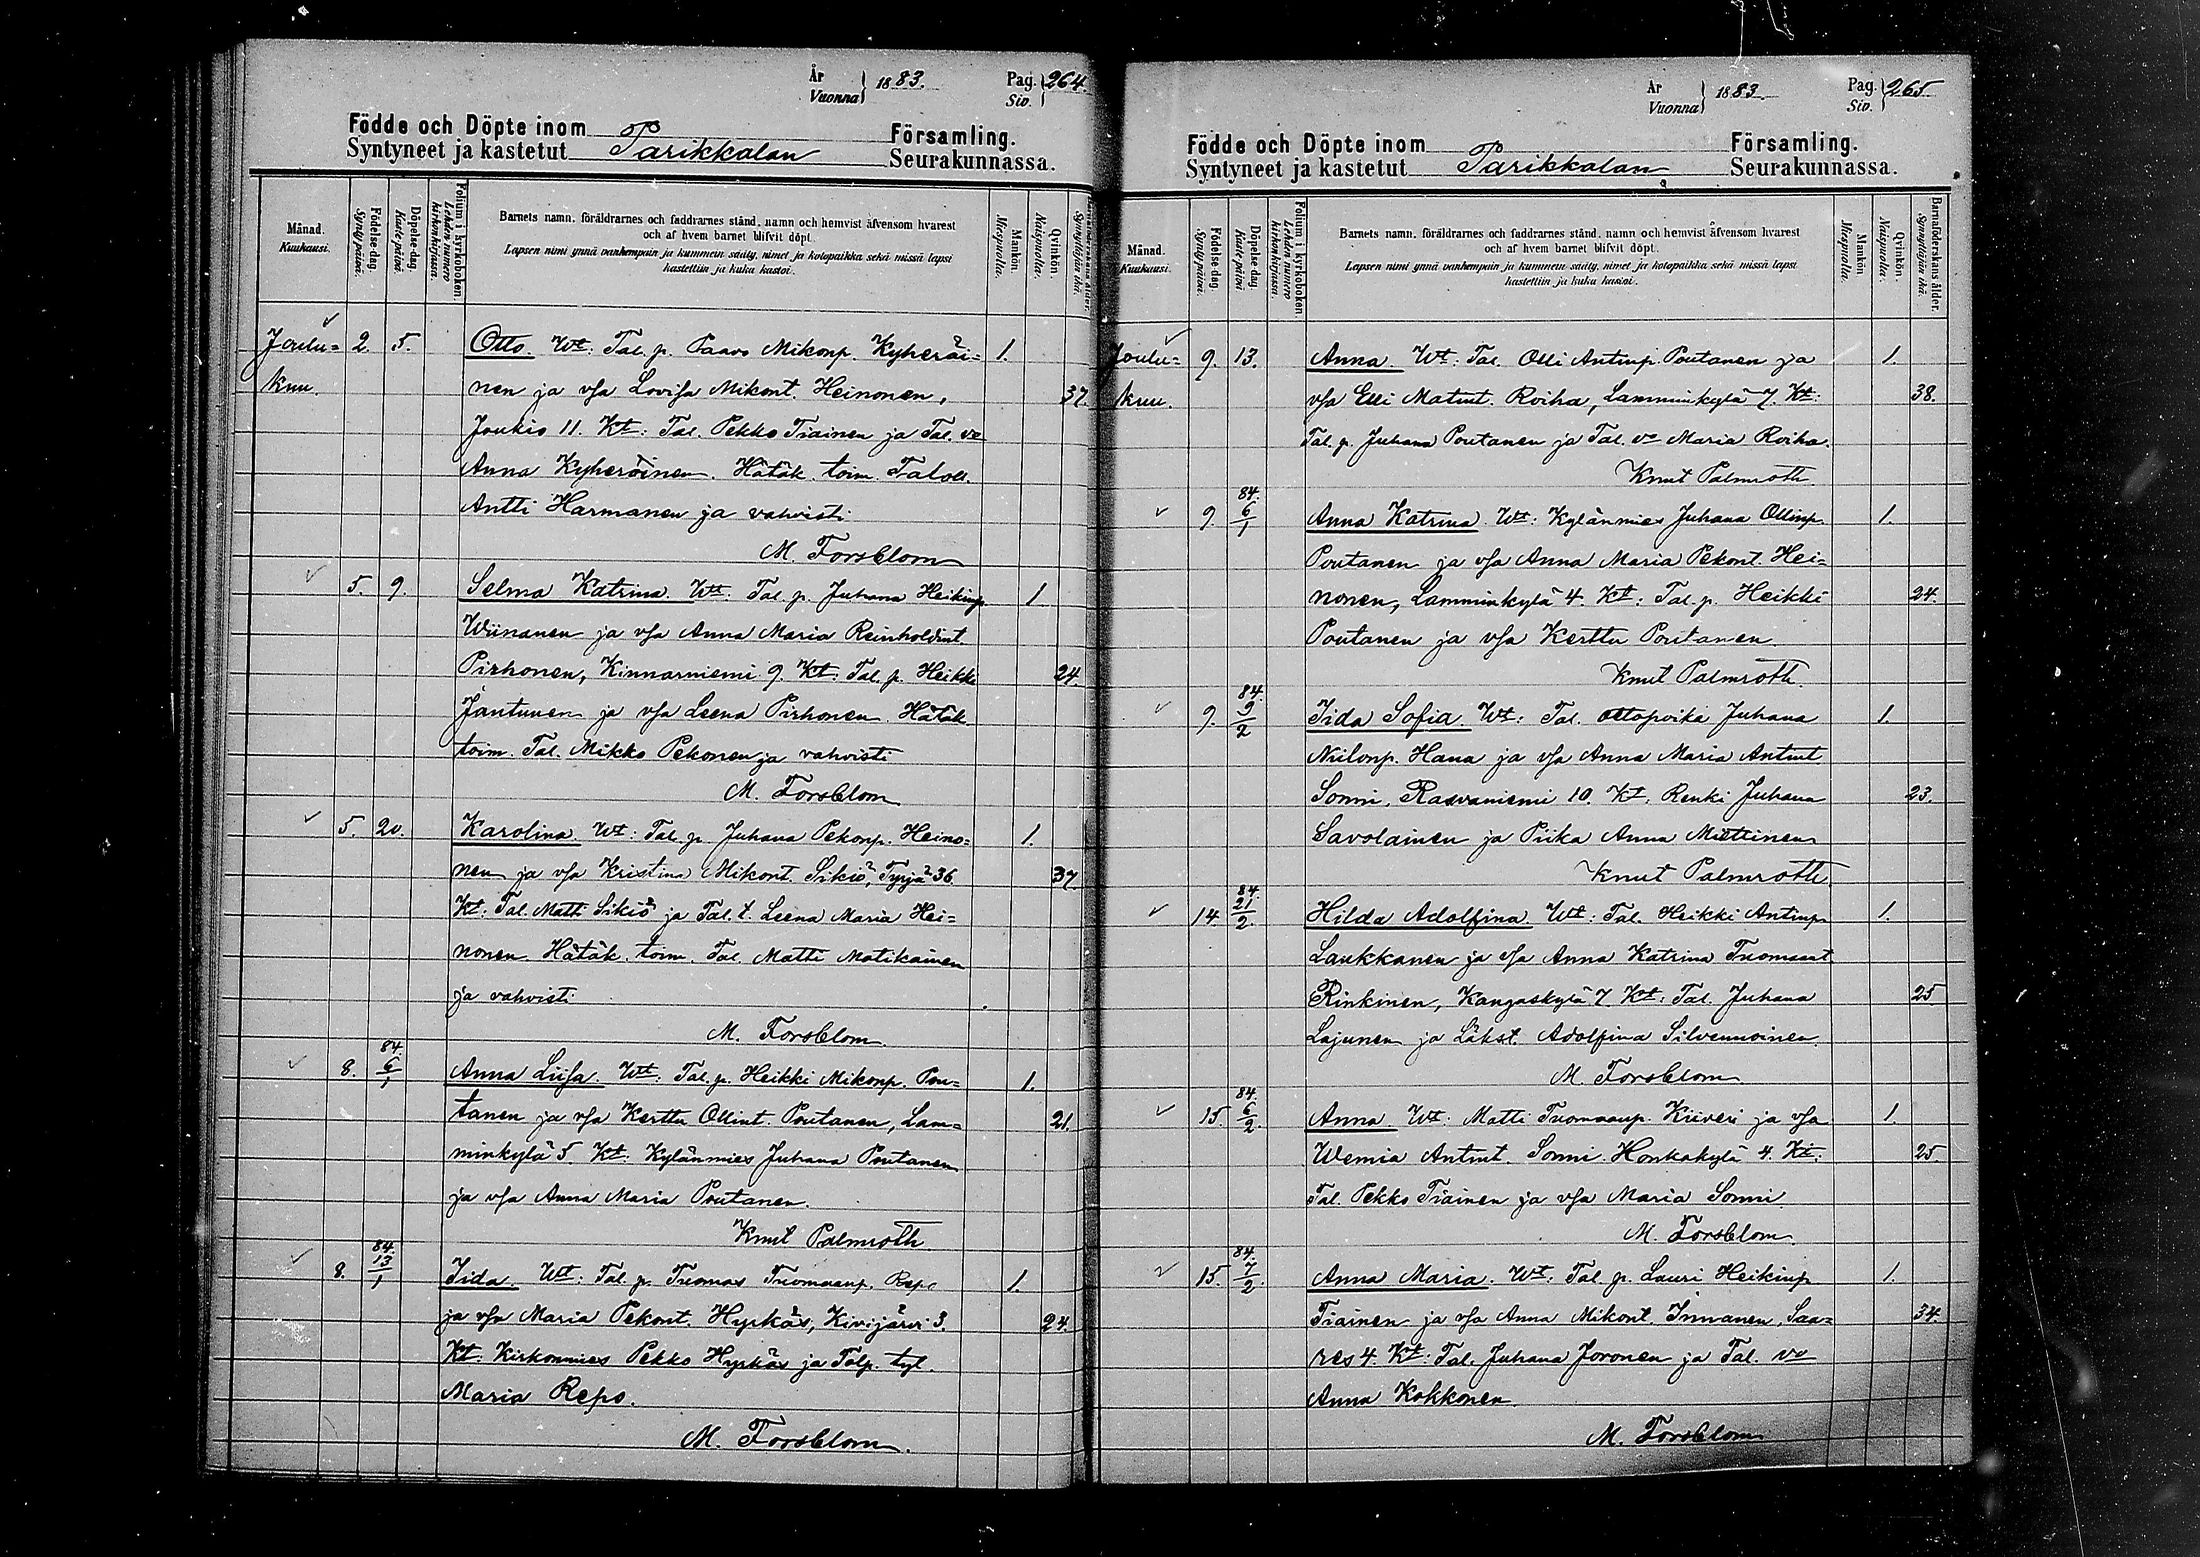 År
Vuonna } 1883.
Pag.
Siv. } 264.
Födde och Döpte inom Församling.
Syntyneet ja kastetut Parikkalan Seurakunnassa.
Månad.
Kuukausi.
Födelse-dag.
Synty päivä.
Döpelse-dag.
Kaste päivä.
Folium i kyrkoboken.
Lehden numero kirkonkirjassa.
Barnets namn, föräldrarnes och faddrarnes stånd, namn och hemvist äfvensom hvarest
och af hvem barnet blifvit döpt.
Lapsen nimi ynnä vanhempain ja kummein sääty, nimet ja kotopaikka sekä missä lapsi
kastettiin ja kuka kastoi.
Mankön.
Miespuolia.
Qvinkön.
Naispuolia.
Barnaföderskans ålder.
Synnyttäjän ikä.
Joulu= 2. 5. Otto. Wt: Tal. p. Paavo Mikonp. Kyheröi= 1.
kuu. nen ja vsa Lovisa Mikont. Heinonen, 37.
Joukio 11. Kt: Tal. Pekko Tiainen ja Tal. vo
Anna Kyheröinen. Hätäk. toim. Taloll.
Antti Harmanen ja vahvisti
M. Forsblom
5. 9. Selma Katrina Wtt: Tal. p. Juhana Heikinp. 1
Wiinanen ja vsa Anna Maria Reinholdint.
Pirhonen, Kinnarniemi 9. Kt: Tal. p. Heikki 24.
Jantunen ja vsa Leena Pirhonen. Hätäk.
toim. Tal. Mikko Pekonen ja vahvisti
M. Forsblom
5. 20. Karolina. Wt: Tal. p. Juhana Pekonp. Heino= 1.
nen ja vsa Kristina Mikont. Sikiö, Tyrjä 36. 37
Kt: Tal. Matti Sikiö ja Tal. t. Leena Maria Hei=
nonen. Hätäk. toim. Tal. Matti Matikainen
ja vahvisti
M. Forsblom.
8. 84. 6/1 Anna Liisa. Wtt: Tal. p. Heikki Mikonp. Pou= 1.
tanen ja vsa Kerttu Ollint. Poutanen, Lam= 21.
minkylä 5. Kt: Kylänmies Juhana Poutanen
ja vsa Anna Maria Poutanen.
Knut Palmroth.
8. 84. 13/1 Iida. Wt: Tal. p. Tuomas Tuomaanp. Repo 1.
ja vsa Maria Pekont. Hyrkäs, Kivijärvi 3. 24.
Kt: Kirkonmies Pekko Hyrkäs ja Talp. tyt.
Maria Repo.
M. Forsblom.
År
Vuonna } 1883.
Pag.
Siv. } 265.
Födde och Döpte inom Församling.
Syntyneet ja kastetut Parikkalan Seurakunnassa.
Månad.
Kuukausi.
Födelse-dag.
Synty päivä.
Döpelse-dag.
Kaste päivä
Folium i kyrkoboken.
Lehden numero kirkonkirjassa.
Barnets namn, föräldrarnes och faddrarnes stånd, namn och hemvist äfvensom hvarest
och af hvem barnet blifvit döpt.
Lapsen nimi ynnä vanhempain ja kummein sääty, nimet ja kotopaikka sekä missä lapsi
kastettiin ja kuka kastoi.
Mankön.
Miespuolia.
Qvinkön.
Naispuolia.
Barnaföderskans ålder.
Synnyttäjän ikä.
Joulu= 9. 13. Anna. Wt: Tal. Olli Antinp. Poutanen ja 1.
kuu. vsa Elli Matint. Roiha, Lamminkylä 7. Kt: 38.
Tal. p. Juhana Poutanen ja Tal. vo Maria Roiha.
Knut Palmroth.
9. 84. 6/1 Anna Katrina. Wt: Kylänmies Juhana Ollinp. 1.
Poutanen ja vsa Anna Maria Pekont. Hei=
nonen, Lamminkylä 4. Kt: Tal. p. Heikki 24.
Poutanen ja vsa Kerttu Poutanen.
Knut Palmroth.
9. 84. 9/2 Iida Sofia. Wt: Tal. ottopoika Juhana 1.
Niilonp. Hana ja vsa Anna Maria Antint
Sonni, Rasvaniemi 10. Kt: Renki Juhana 23.
Savolainen ja Piika Anna Miettinen
Knut Palmroth.
14. 84. 21/2. Hilda Adolfina. Wt: Tal. Heikki Antinp. 1.
Laukkanen ja vsa Anna Katrina Tuomaant.
Rinkinen, Kangaskylä 7 Kt: Tal. Juhana 25
Lajunen ja Läkst. Adolfina Silvennoinen.
M. Forsblom
15. 84. 6/2. Anna Wt: Matti Tuomaanp. Kiiveri ja vsa 1.
Wemia Antint. Sonni. Honkakylä 4. Kt: 25.
Tal. Pekko Tiainen ja vsa Maria Sonni.
M. Forsblom.
15. 84. 7/2. Anna Maria. Wt: Tal. p. Lauri Heikinp. 1.
Tiainen ja vsa Anna Mikont. Innanen, Saa= 34.
res 4. Kt: Tal. Juhana Joronen ja Tal. vo
Anna Kokkonen.
M. Forsblom